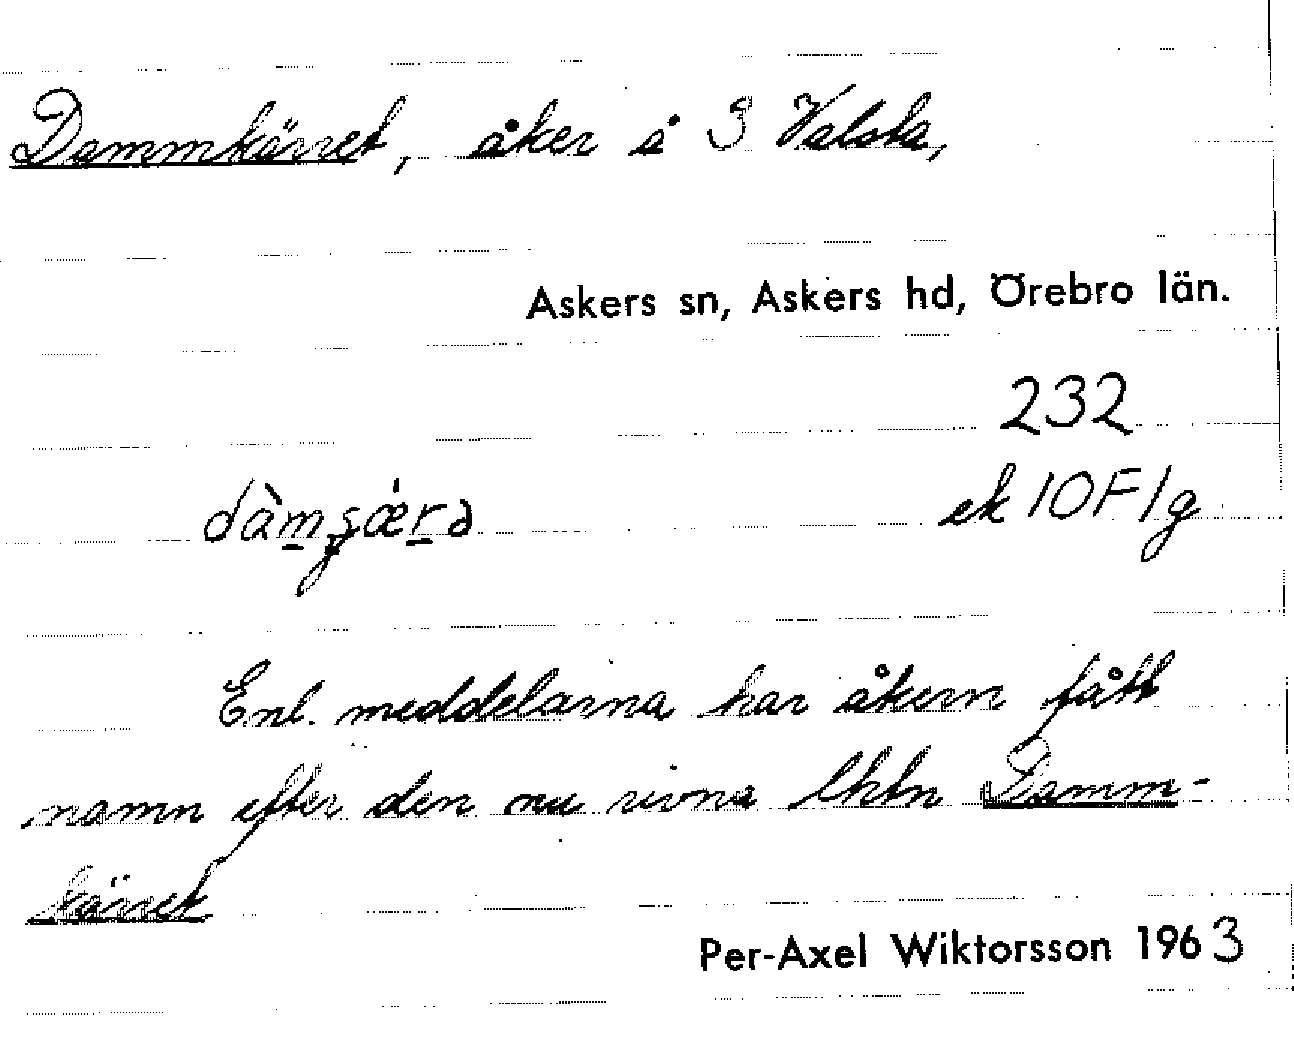 Dammkärret, åker å S Valsta,
Askers sn, Askers hd, Örebro län.
232
dàm̲ʂǽr̲ə
ek 10F1g
Enl. meddelarna har åkern fått
namn efter den nu rivna lhtn Damm-
kärret
Per-Axel Wiktorsson 1963